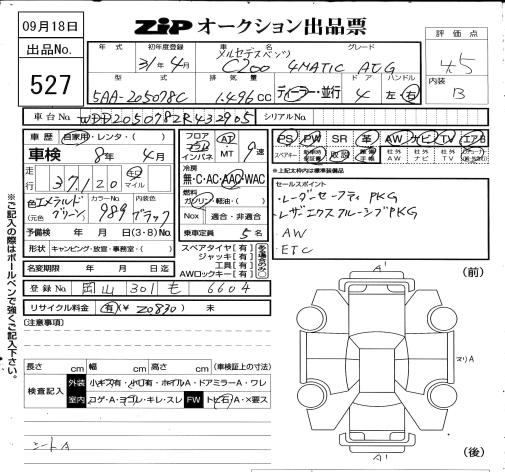 09月18日
ZIP オークション出品票
評価点
4.5
出品No.
527
年式
初年度登録
31年4月
車名
メルセデスベンツ
C200 4MATIC AMG
グレード
内装
B
型式
5AA-205078C
排気量
1.496cc
ディーラー・並行
ドア
4
ハンドル
左・右
車台No.
シリアルNo.
車歴
自家用・レンタ・( )
車検
8年 4月
走行
37,120
キロ
マイル
色
エメラルドグリーン
(元色 ブラック)
カラーNo.
989
予備検 年 月 日(3・8)No.
形状
キャンピング・放宣・事務室・( )
名変期限 年 月 日迄
登録No.
岡山 301 も 6604
リサイクル料金
有(¥ 20830) 未
フロア
コラム
インパネ
AT
MT
9速
冷房
無・C・AC・AAC・WAC
燃料
ガソリン・軽油・( )
Nox
適合・非適合
乗車定員 5名
スペアタイヤ[有]
ジャッキ[有]
工具[有]
AWロックキー[有]
ある場合のみ○
PS
PW
SR
革
AW
ナビ
TV
エアB
スペアキー
新車時保証書
取説
社外AW
社外ナビ
社外TV
※上記太枠内は標準装備品
セールスポイント
・レーダーセーフティPKG
・レザーエクスクルーシブPKG
・AW
・ETC
[注意事項]
長さ cm 幅 cm 高さ cm (車検証上の寸法)
検査記入
外装
小キズ有・小凹有・ホイルA・ドアミラーA・ワレ
室内
コゲA・ヨゴレ・キレ・スレ
FW
トビ石A・×要ス
シートA
(前)
A'
マリA
A'
(後)
※ご記入の際はボールペンで強くご記入下さい。